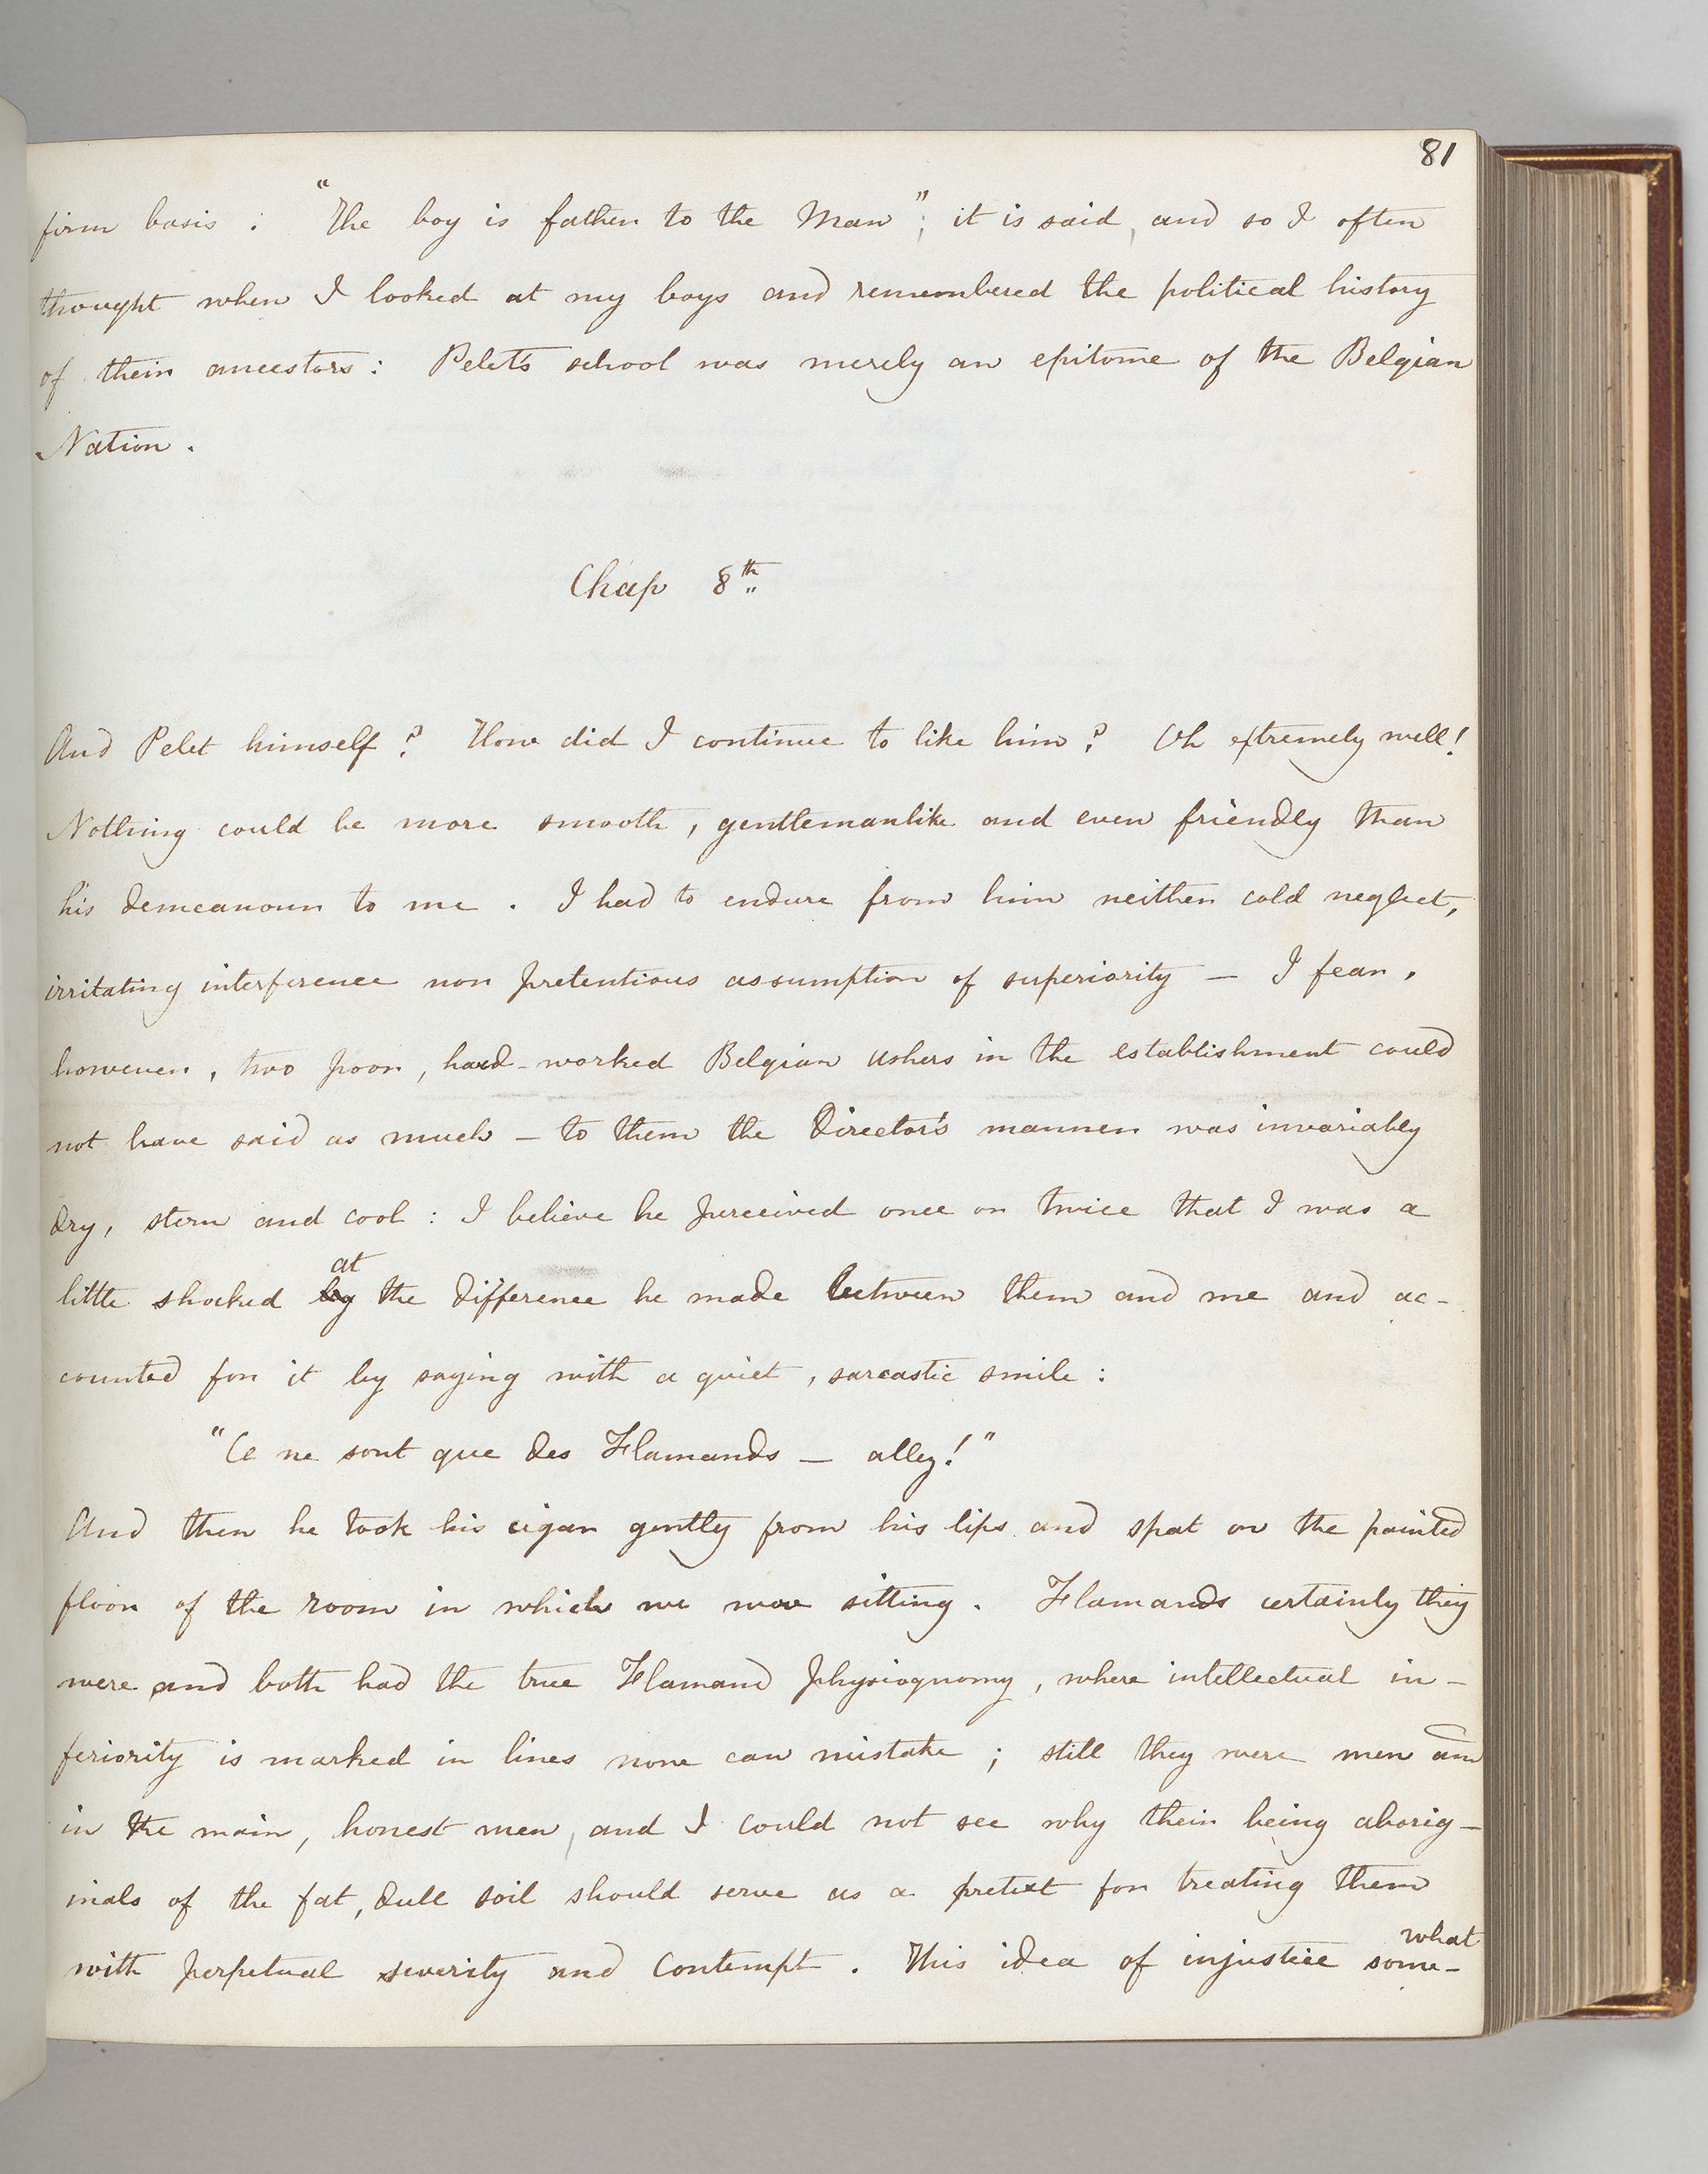 81
firm basis : "The boy is father to the Man"; it is said, and so I often
thought when I looked at my boys and remembered the political history
of their ancestors : Pelet's school was merely an epitome of the Belgian
Nation .
Chap 8th
And Pelet himself ? How did I continue to like him ? Oh extremely well!
Nothing could be more smooth , gentlemanlike and even friendly than
his demeanour to me . I had to endure from him neither cold neglect,
irritating interference nor pretentious assumption of superiority — I fear ,
however , two poor , hard-worked Belgian ushers in the establishment could
not have said as much — to them the Director's manner was invariably
dry, stern and cool : I believe he perceived once or twice that I was a
little shocked by at the difference he made between them and me and ac-
counted for it by saying with a quiet , sarcastic smile :
"Ce ne sont que des Flamands — allez!"
And then he took his cigar gently from his lips and spat on the painted
floor of the room in which we were sitting . Flamands certainly they
were and both had the true Flamand physiognomy , where intellectual in-
feriority is marked in lines none can mistake ; still they were men and
in the main, honest men, and I could not see why their being aborig-
inals of the fat, dull soil should serve as a pretext for treating them
with perpetual severity and contempt . This idea of injustice some-what